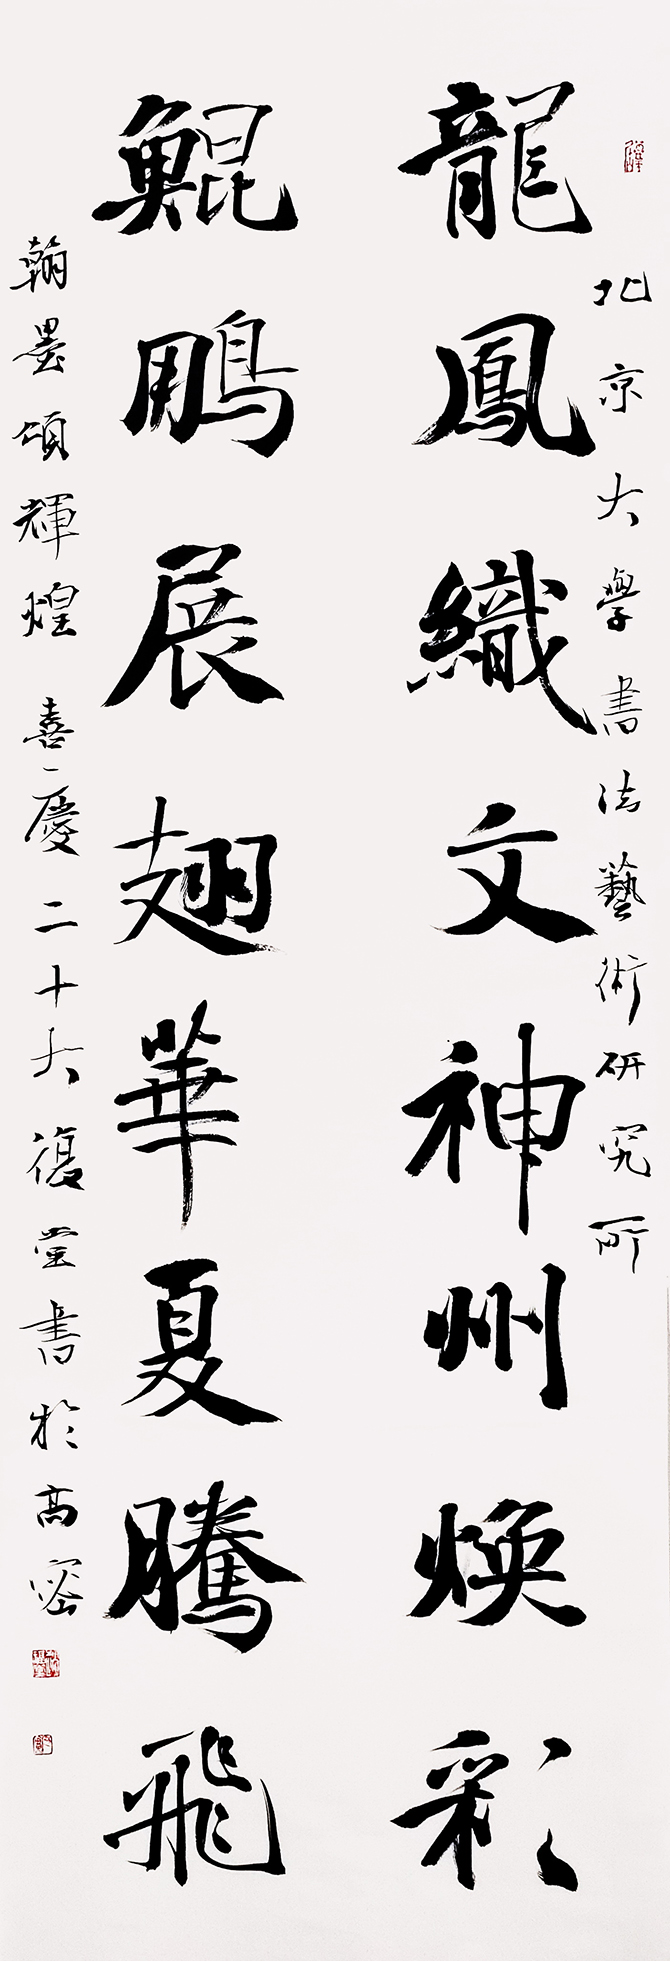 北京大學書法藝術研究所
龍鳳織文神州煥彩
鯤鵬展翅華夏騰飛
翰墨頌輝煌 喜慶二十大 復堂書於高密